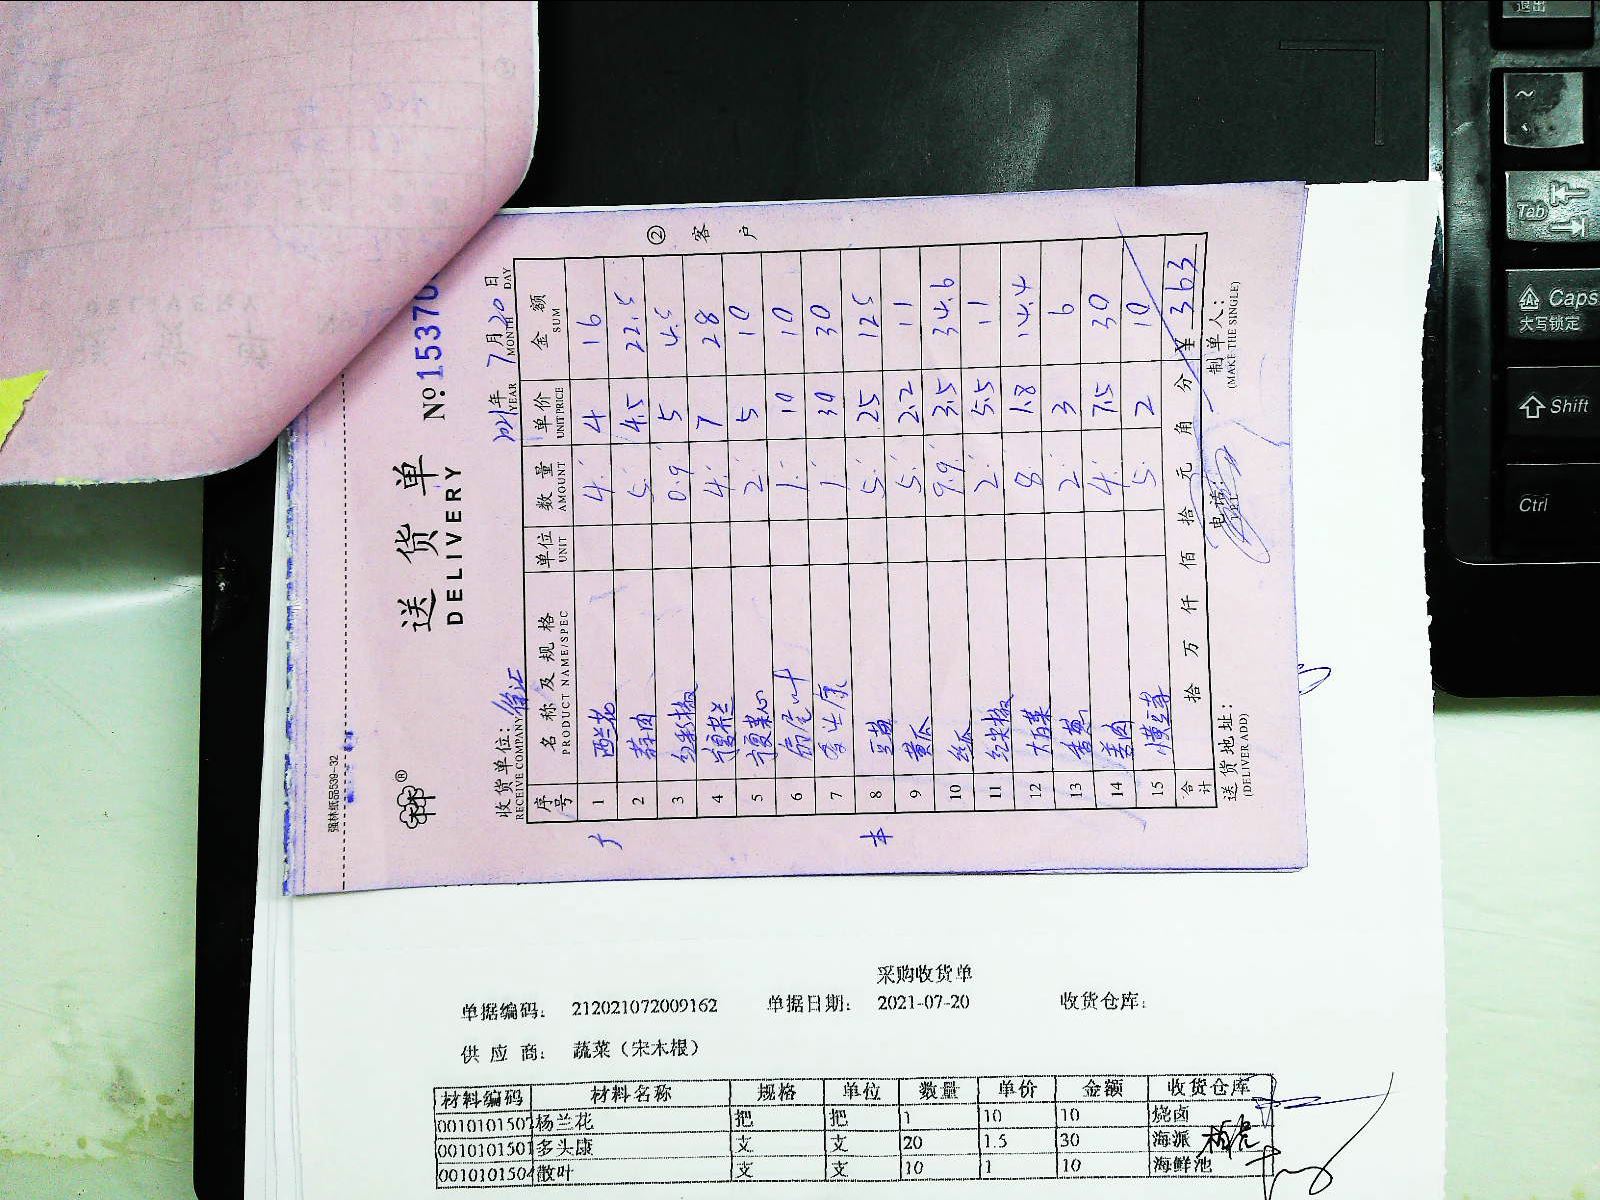 强林纸品539-32
送货单
DELIVERY
№ 15370
② 客户
收货单位: 徐汇
RECEIVE COMPANY
2021年 7月20日
YEAR MONTH DAY
序号 名称及规格 单位 数量 单价 金额
PRODUCT NAME/SPEC UNIT AMOUNT UNIT PRICE SUM
1 西兰花 4 4 16
2 蒜肉 5 4.5 22.5
3 红彩椒 0.9 5 4.5
4 4 7 28
5 2 5 10
6 1 10 10
7 1 30 30
8 豆苗 5 25 125
9 黄瓜 5 2.2 11
10 丝瓜 9.9 3.5 34.6
11 红尖椒 2 5.5 11
12 大白菜 8 1.8 14.4
13 香葱 2 3 6
14 姜肉 4 7.5 30
15 5 2 10
合计 拾 万 仟 佰 拾 元 角 分 ¥ 363
送货地址: 电话: 制单人:
(DELIVER ADD) (MAKE THE SINGLE)
采购收货单
单据编码: 212021072009162 单据日期: 2021-07-20 收货仓库:
供应商: 蔬菜(宋木根)
材料编码 材料名称 规格 单位 数量 单价 金额 收货仓库
0010101507 杨兰花 把 把 1 10 10 烧卤
0010101501 多头康 支 支 20 1.5 30 海派
0010101504 散叶 支 支 10 1 10 海鲜池
退出
~
Tab
Caps
大写锁定
Shift
Ctrl